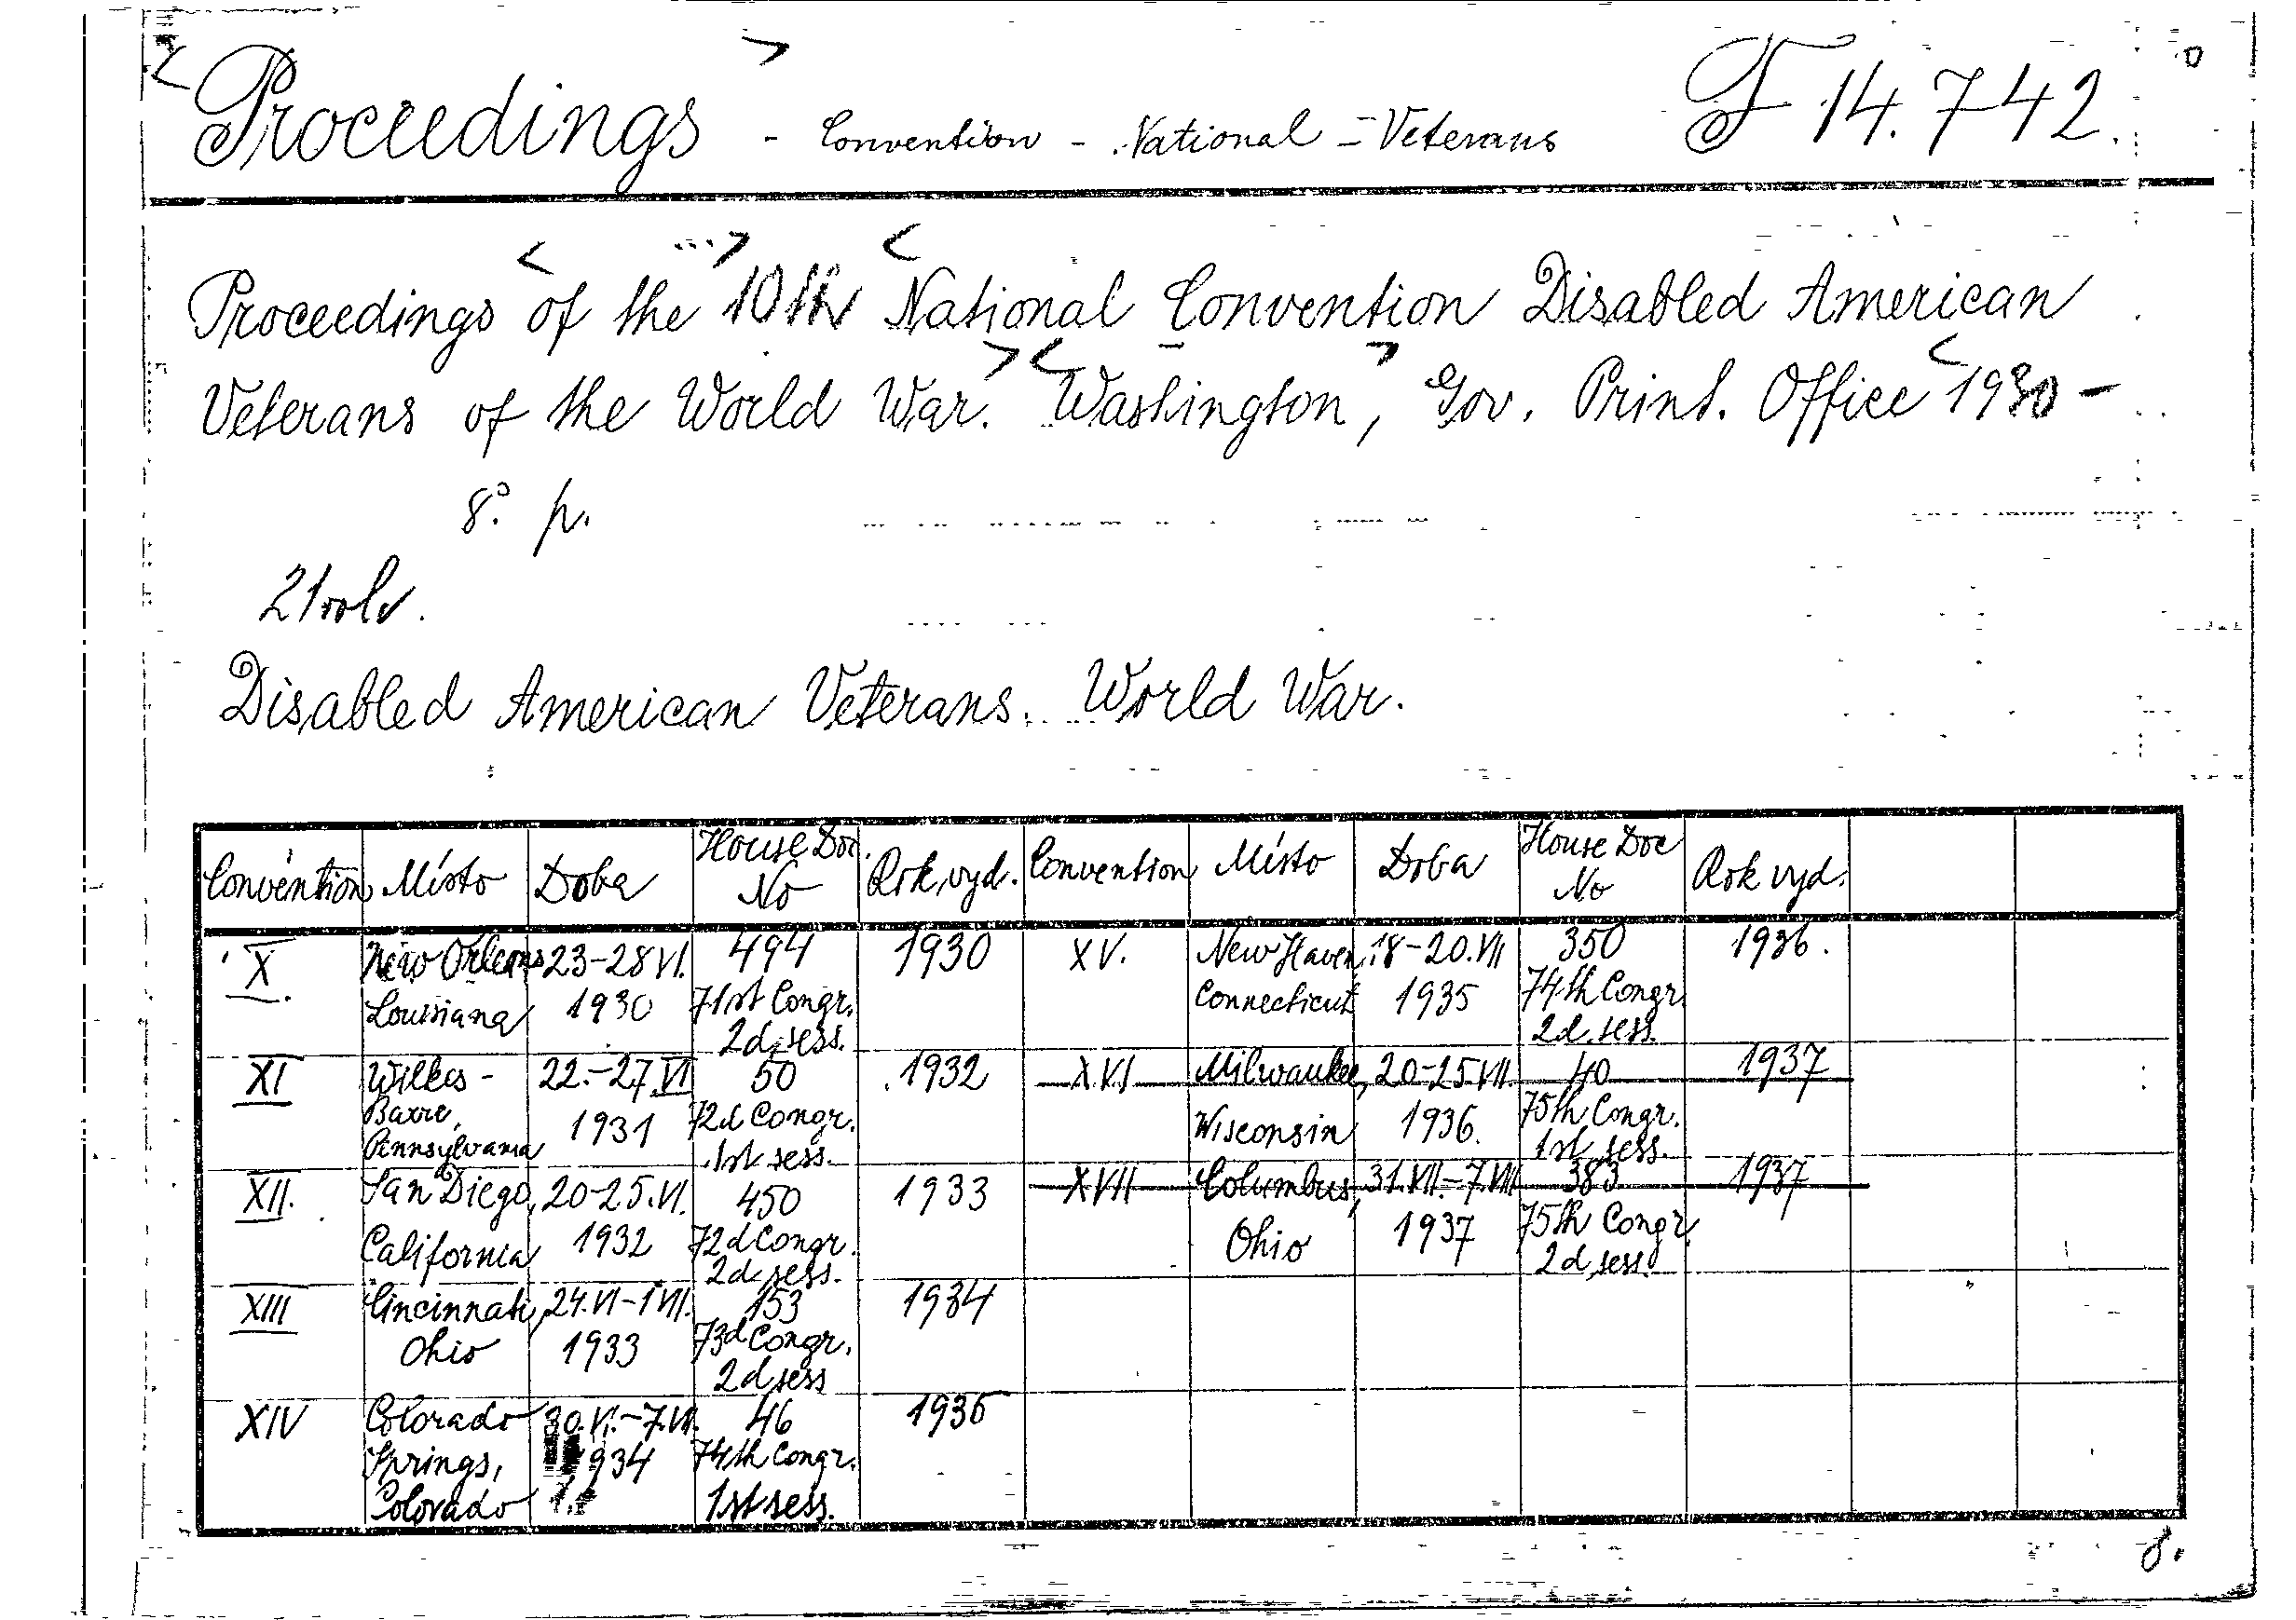 Proceedings - Convention - National = Veterans F 14.742.
Proceedings of the 10th National Convention Disabled American
Veterans of the World War. Washington, Gov. Print. Office 1930 -
8.° p.
Disabled American Veterans. World War.
Convention Místo Doba House Doc. No Rok vyd. Convention Místo Doba House Doc No Rok vyd.
X. New Orleans Louisiana 23-28 VI. 1930 494 71st Congr. 2d sess. 1930 XV. New Haven, Connecticut 18-20.VII 1935 350 74th Congr. 2d. sess. 1936.
XI Wilkes-Barre, Pennsylvania 22.-27.VI 1931 50 72d Congr. 1st sess. 1932 XVI Milwaukee, Wisconsin 20-25 VII 1936. 40 75th Congr. 1st sess. 1937
XII. San Diego, California 20-25.VI. 1932 450 72d Congr. 2d sess. 1933 XVII Columbus, Ohio 31.VII.-7.VIII 1937 383 75th Congr. 2d sess. 1937
XIII Cincinnati, Ohio 24.VI-1 VII. 1933 153 73d Congr. 2d sess 1934
XIV Colorado Springs, Colorado 30.VI.-7.VII. 1934 46 74th Congr. 1st sess. 1935
8.